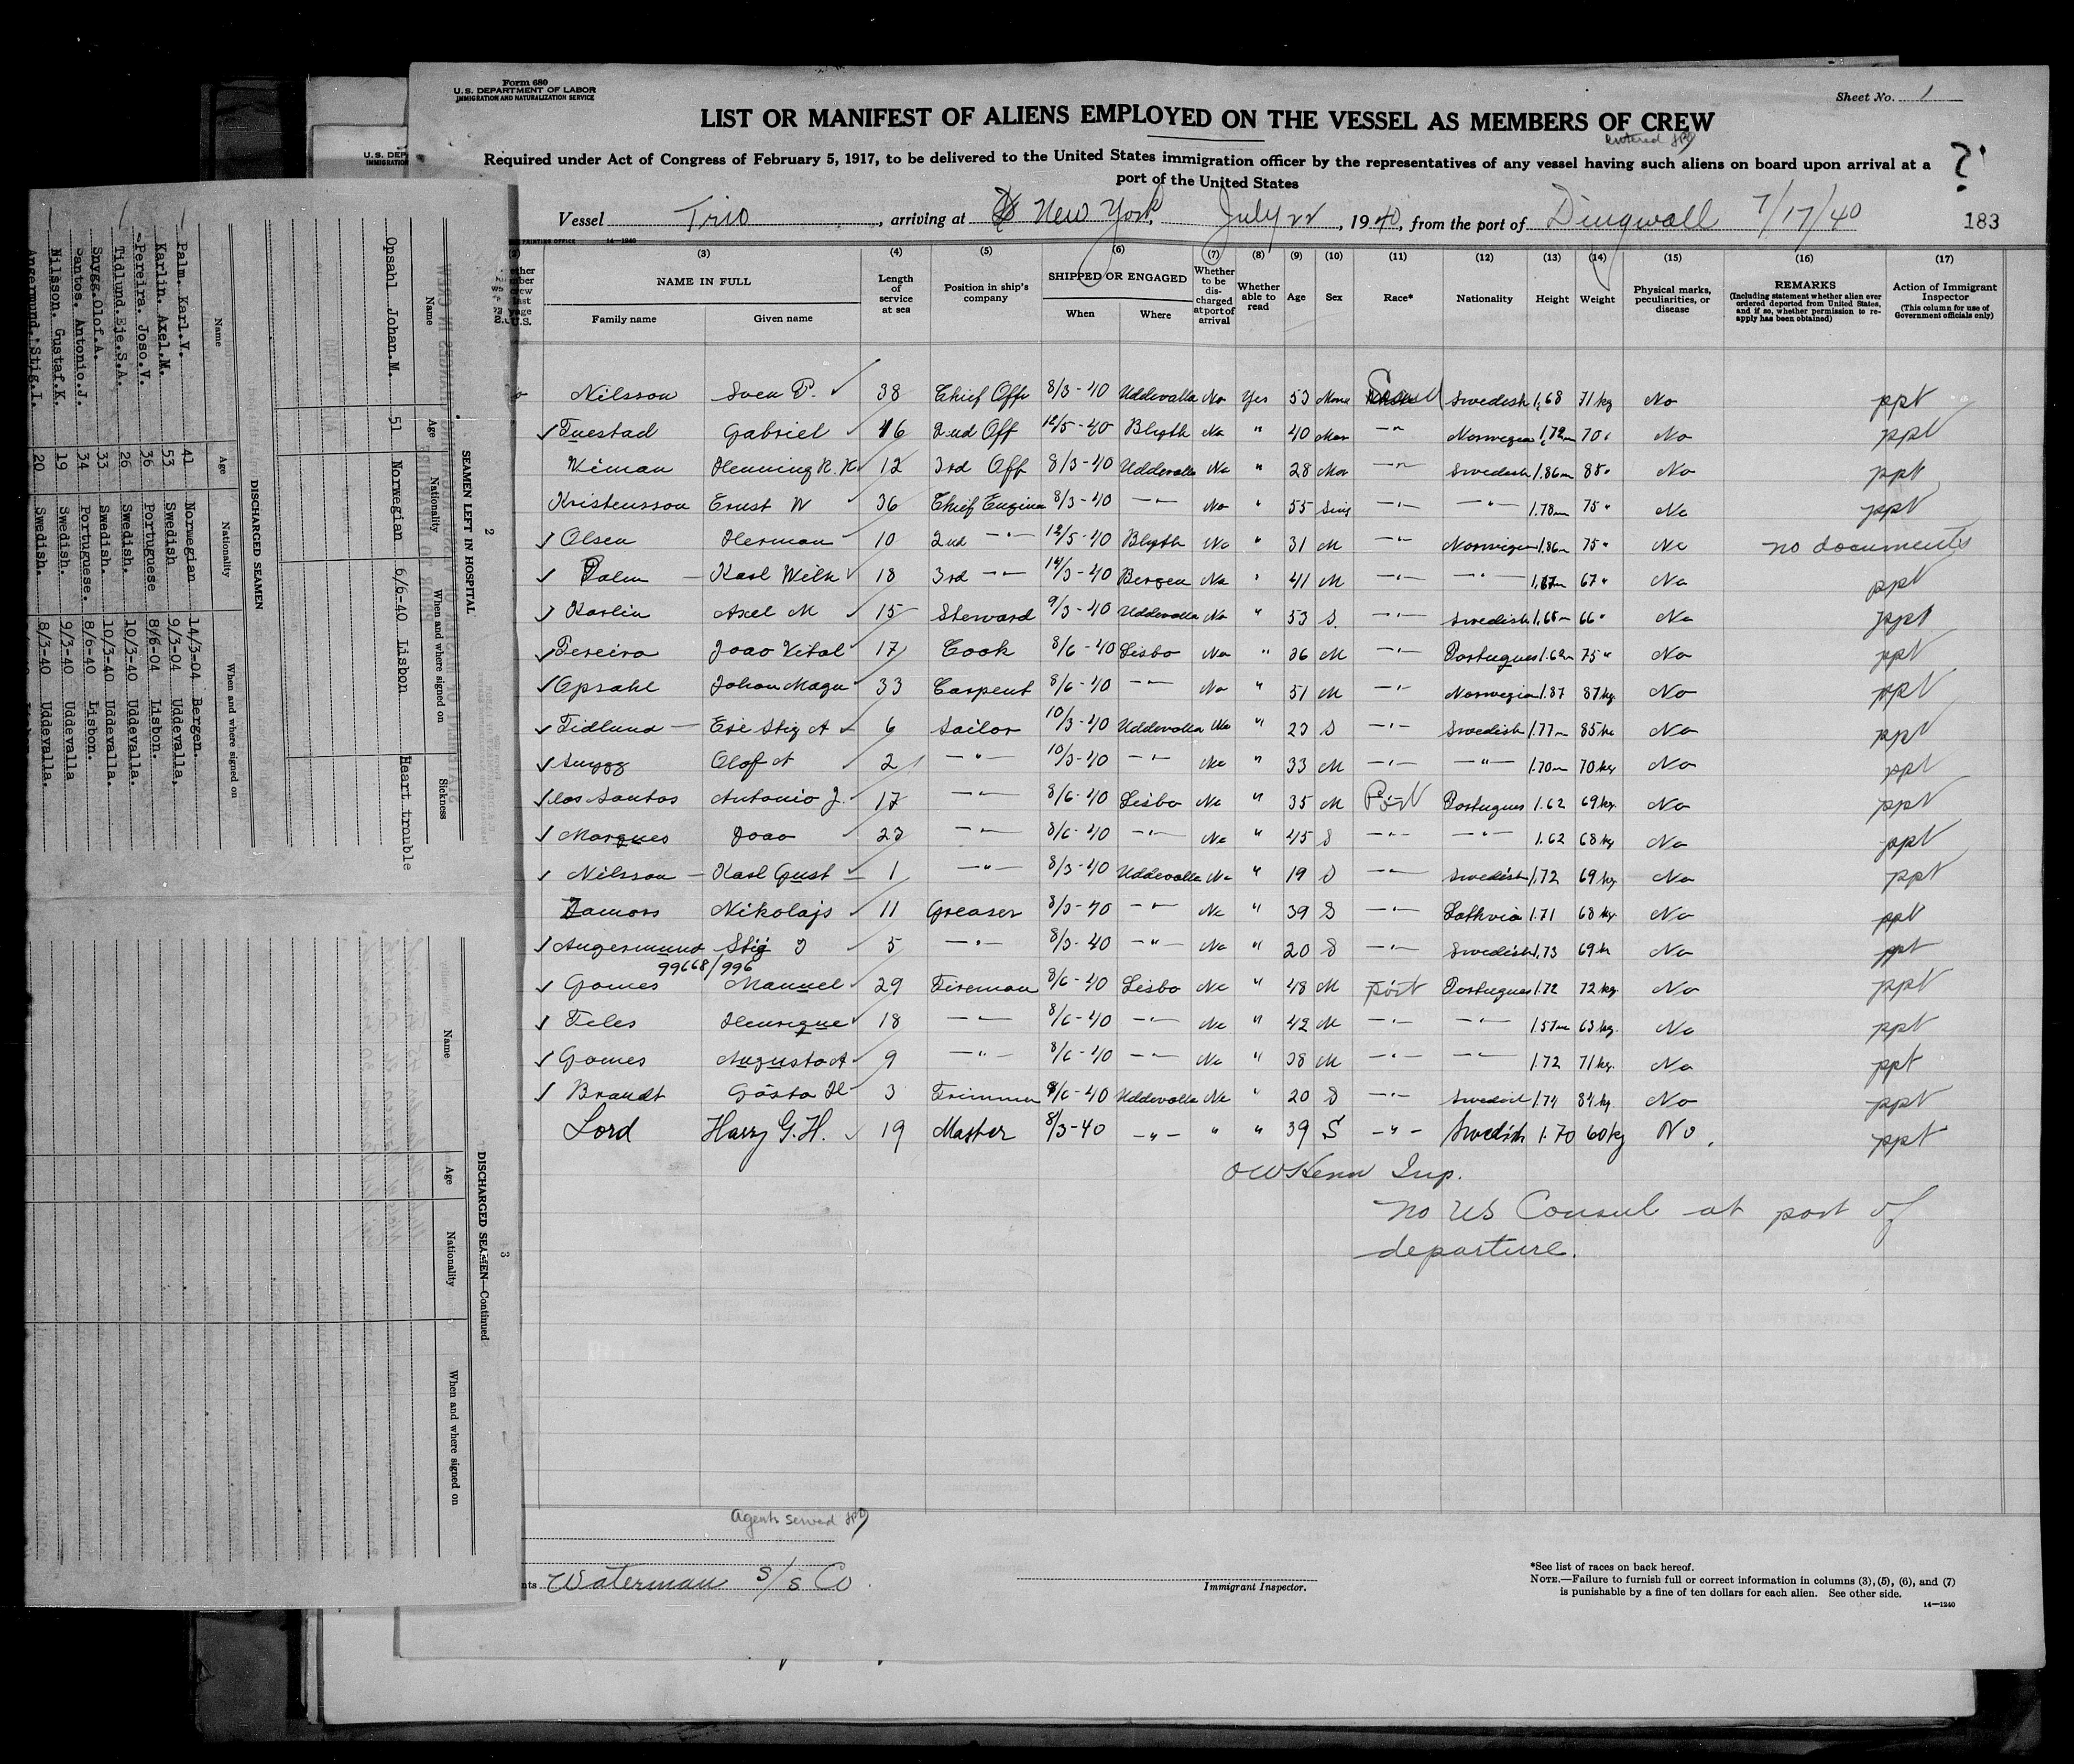 Form 680
U.S. DEPARTMENT OF LABOR
IMMIGRATION AND NATURALIZATION SERVICE
Sheet No. 1
LIST OR MANIFEST OF ALIENS EMPLOYED ON THE VESSEL AS MEMBERS OF CREW
Required under Act of Congress of February 5, 1917, to be delivered to the United States immigration officer by the representatives of any vessel having such aliens on board upon arrival at a
port of the United States
?
Vessel Trio, arriving at New York, July 22, 1940, from the port of Dingwall 7/17/40
183
(3) (4) (5) (6) (7) (8) (9) (10) (11) (12) (13) (14) (15) (16) (17)
NAME IN FULL
Family name Given name
Length of service at sea
Position in ship's company
SHIPPED OR ENGAGED
When Where
Whether to be discharged at port of arrival
Whether able to read
Age Sex Race* Nationality Height Weight
Physical marks, peculiarities, or disease
REMARKS
(Including statement whether alien ever ordered deported from United States, and if so, whether permission to reapply has been obtained)
Action of Immigrant Inspector
(This column for use of Government officials only)
Nilsson Sven P. 38 Chief Off 8/3-40 Uddevalla No Yes 53 Scand Swedish 1,68 71 kg No ppt
Tuestad Gabriel 16 2nd Off 12/5-40 Blyth No " 40 — " — Norwegian 1,72m 70 " No ppt
Wiman Henning R. K 12 3rd Off 8/3-40 Uddevalla No " 28 — " — Swedish 1.86m 88 " No ppt
Kristensson Ernst W 36 Chief Engine 8/3-40 — " — No " 55 — " — — " — 1.78m 75 " No ppt
Olsen Herman 10 2nd — " — 12/5-40 Blyth No " 31 M — " — Norwegian 1.86m 75 " No no documents
Palm Karl Wilh 18 3rd — " — 14/3-40 Bergen No " 41 M — " — — " — 1.67m 67 " No ppt
Karlin Axel M 15 Steward 9/3-40 Uddevalla No " 53 S. — " — Swedish 1,68m 66 " No ppt
Pereira Joao Vital 17 Cook 8/6-40 Lisbo No " 36 M — " — Portugues 1.62m 75 " No ppt
Opsahl Johan Magn 33 Carpent 8/6-40 — " — No " 51 M — " — Norwegian 1.87 87 kg No ppt
Tidlund Eje Stig A 6 Sailor 10/3-40 Uddevalla No " 23 S — " — Swedish 1.77m 85 kg No ppt
Snygg Olof A 2 — " — 10/3-40 — " — No " 33 M — " — — " — 1.70m 70 kg No ppt
dos Santos Antonio J. 17 — " — 8/6-40 Lisbo No " 35 M Port Portugues 1.62 69 kg. No ppt
Marques Joao 23 — " — 8/6-40 — " — No " 45 S — " — — " — 1.62 68 kg No ppt
Nilsson Karl Gust 1 — " — 8/3-40 Uddevalla No " 19 S — " — Swedish 1.72 69 kg No ppt
Zamors Nikolajs 11 Greaser 8/3-40 — " — No " 39 S — " — Lathvia 1.71 68 kg. No ppt
Angermund Stig I 5 — " — 8/3-40 — " — No " 20 S — " — Swedish 1.73 69 k No ppt
99668/996
Gomes Manuel 29 Fireman 8/6-40 Lisbo No " 48 M Port Portugues 1.72 72 kg. No ppt
Teles Henrique 18 — " — 8/6-40 — " — No " 42 M — " — — " — 1.57m 63 kg. No ppt
Gomes Augusto A 9 — " — 8/6-40 — " — No " 38 M — " — — " — 1.72 71 kg. No ppt
Brandt Gösta H 3 Trimmer 8/6-40 Uddevalla No " 20 S — " — Swedish 1.74 84 kg. No ppt
Lord Harry G. H. 19 Master 8/3-40 — " — " " 39 S — " — Swedish 1.70 60 kg No. ppt
Insp.
no US Consul at port of
departure.
Agents served
Waterman S/S Co.
Immigrant Inspector.
*See list of races on back hereof.
NOTE.—Failure to furnish full or correct information in columns (3), (5), (6), and (7)
is punishable by a fine of ten dollars for each alien. See other side.
14—1240
2
SEAMEN LEFT IN HOSPITAL
Name Age Nationality When and where signed on Sickness
Opsahl Johan.M. 51 Norwegian 6/6-40 Lisbon Heart trouble
DISCHARGED SEAMEN
Name Age Nationality When and where signed on
Palm. Karl.V. 41 Norwegian 14/3-04 Bergen.
Karlin. Axel.M. 53 Swedish 9/3-04 Uddevalla.
Pereira. Joso.V. 36 Portuguese 8/6-04 Lisbon.
Tidlund.Eje.S.A. 26 Swedish. 10/3-40 Uddevalla.
Snygg.Olof.A. 33 Swedish. 10/3-40 Uddevalla.
Santos. Antonio.J. 34 Portuguese. 8/6-40 Lisbon.
Nilsson. Gustaf.K. 19 Swedish. 9/3-40 Uddevalla
Angermund.Stig.I. 20 Swedish. 8/3-40 Uddevalla.
3
DISCHARGED SEAMEN—Continued
Name Age Nationality When and where signed on